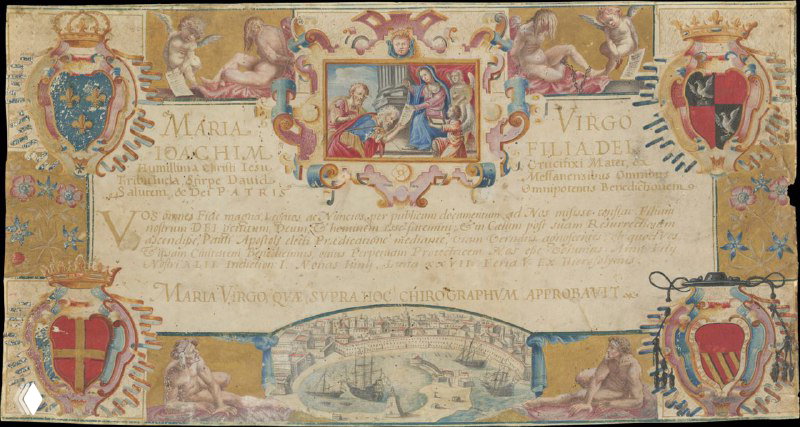 MARIA VIRGO
IOACHIM FILIA DEI
Humillima Christi Iesu Crucifixi Mater, ex
Tribu Iuda, Stirpe David Messanensibus Omnibus
Salutem, & Dei PATRIS Omnipotentis Benedictionem
VOS omnes Fide magna Legatos, ac Nuncios, per publicum documentum ad Nos misisse constat Filium
nostrum DEI Genitum Deum, & hominem esse fatemini, & in Cælum post suam Resurrectionem
ascendisse Pauli Apostoli electi Prædicatione mediante, viam Veritatis agnoscentes
ipsam Civitatem Benedicimus, cuius Perpetuam Protectricem Nos esse Volumus. Anno Filij
Nostri XLII Indictione I Nonas Iunij, Luna XXVII Feria V
MARIA VIRGO, QVÆ SVPRA HOC CHIROGRAPHVM APPROBAVIT